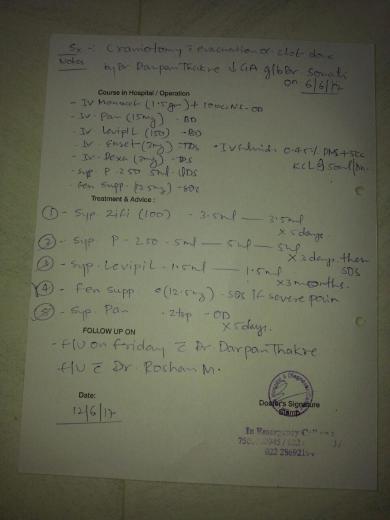 Sx -: Craniotomy c̄ evacuation of clot done
Notes by Dr Darpan Thakre ↓ GA g/b Dr Sonali
on 6/6/17
Course in Hospital / Operation
- IV (1.5gm) + NS - OD
- IV. Pan (15mg) - BD
- IV Levipil (150) - BD
- IV. Emset (2mg) - TDS • IV fluid: 0.45% DNS + 5cc
- IV. Dexa (2mg) - TDS KCL @ 50ml/hr.
- Syp P-250 5ml - TDS
- Fen Supp. (12.5mg) - SOS
Treatment & Advise :
1 - Syp. Zifi (100) - 3.5ml — 3.5ml
x 5 days.
2 - Syp. P-250 - 5ml — 5ml — 5ml
x 3 days. then
SOS
3 - Syp. Levipil - 1.5ml — 1.5ml
x 3 months.
4 - Fen Supp. (12.5mg) - SOS if severe pain
5 - Syp. Pan - 2tsp - OD
x 5 days.
FOLLOW UP ON
- F/U on Friday c̄ Dr Darpan Thakre
F/U c̄ Dr. Roshan M.
Date:
12/6/17
Doctor's Signature
Stamp
In Emergency
022